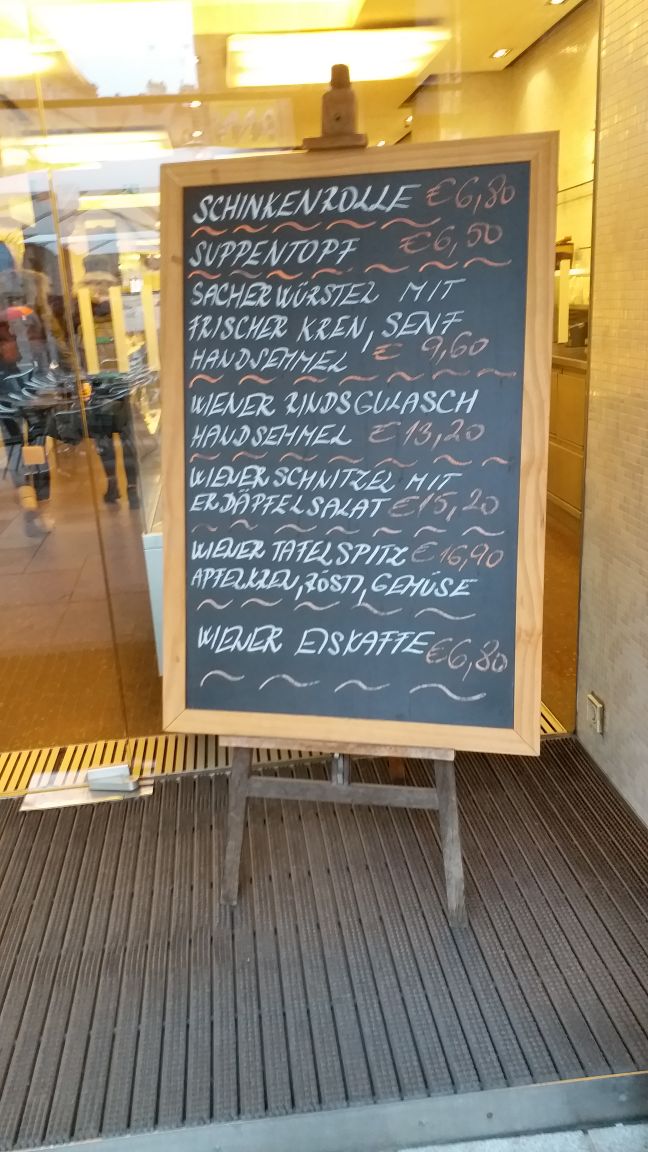 SCHINKENROLLE €6,80
SUPPENTOPF €6,50
SACHERWÜRSTEL MIT
FRISCHER KREN, SENF
HANDSEMMEL € 9,60
WIENER RINDSGULASCH
HANDSEMMEL €13,20
WIENER SCHNITZEL MIT
ERDÄPFELSALAT €15,20
WIENER TAFELSPITZ €16,90
APFELKREN, RÖSTI, GEMÜSE
WIENER EISKAFFE €6,80